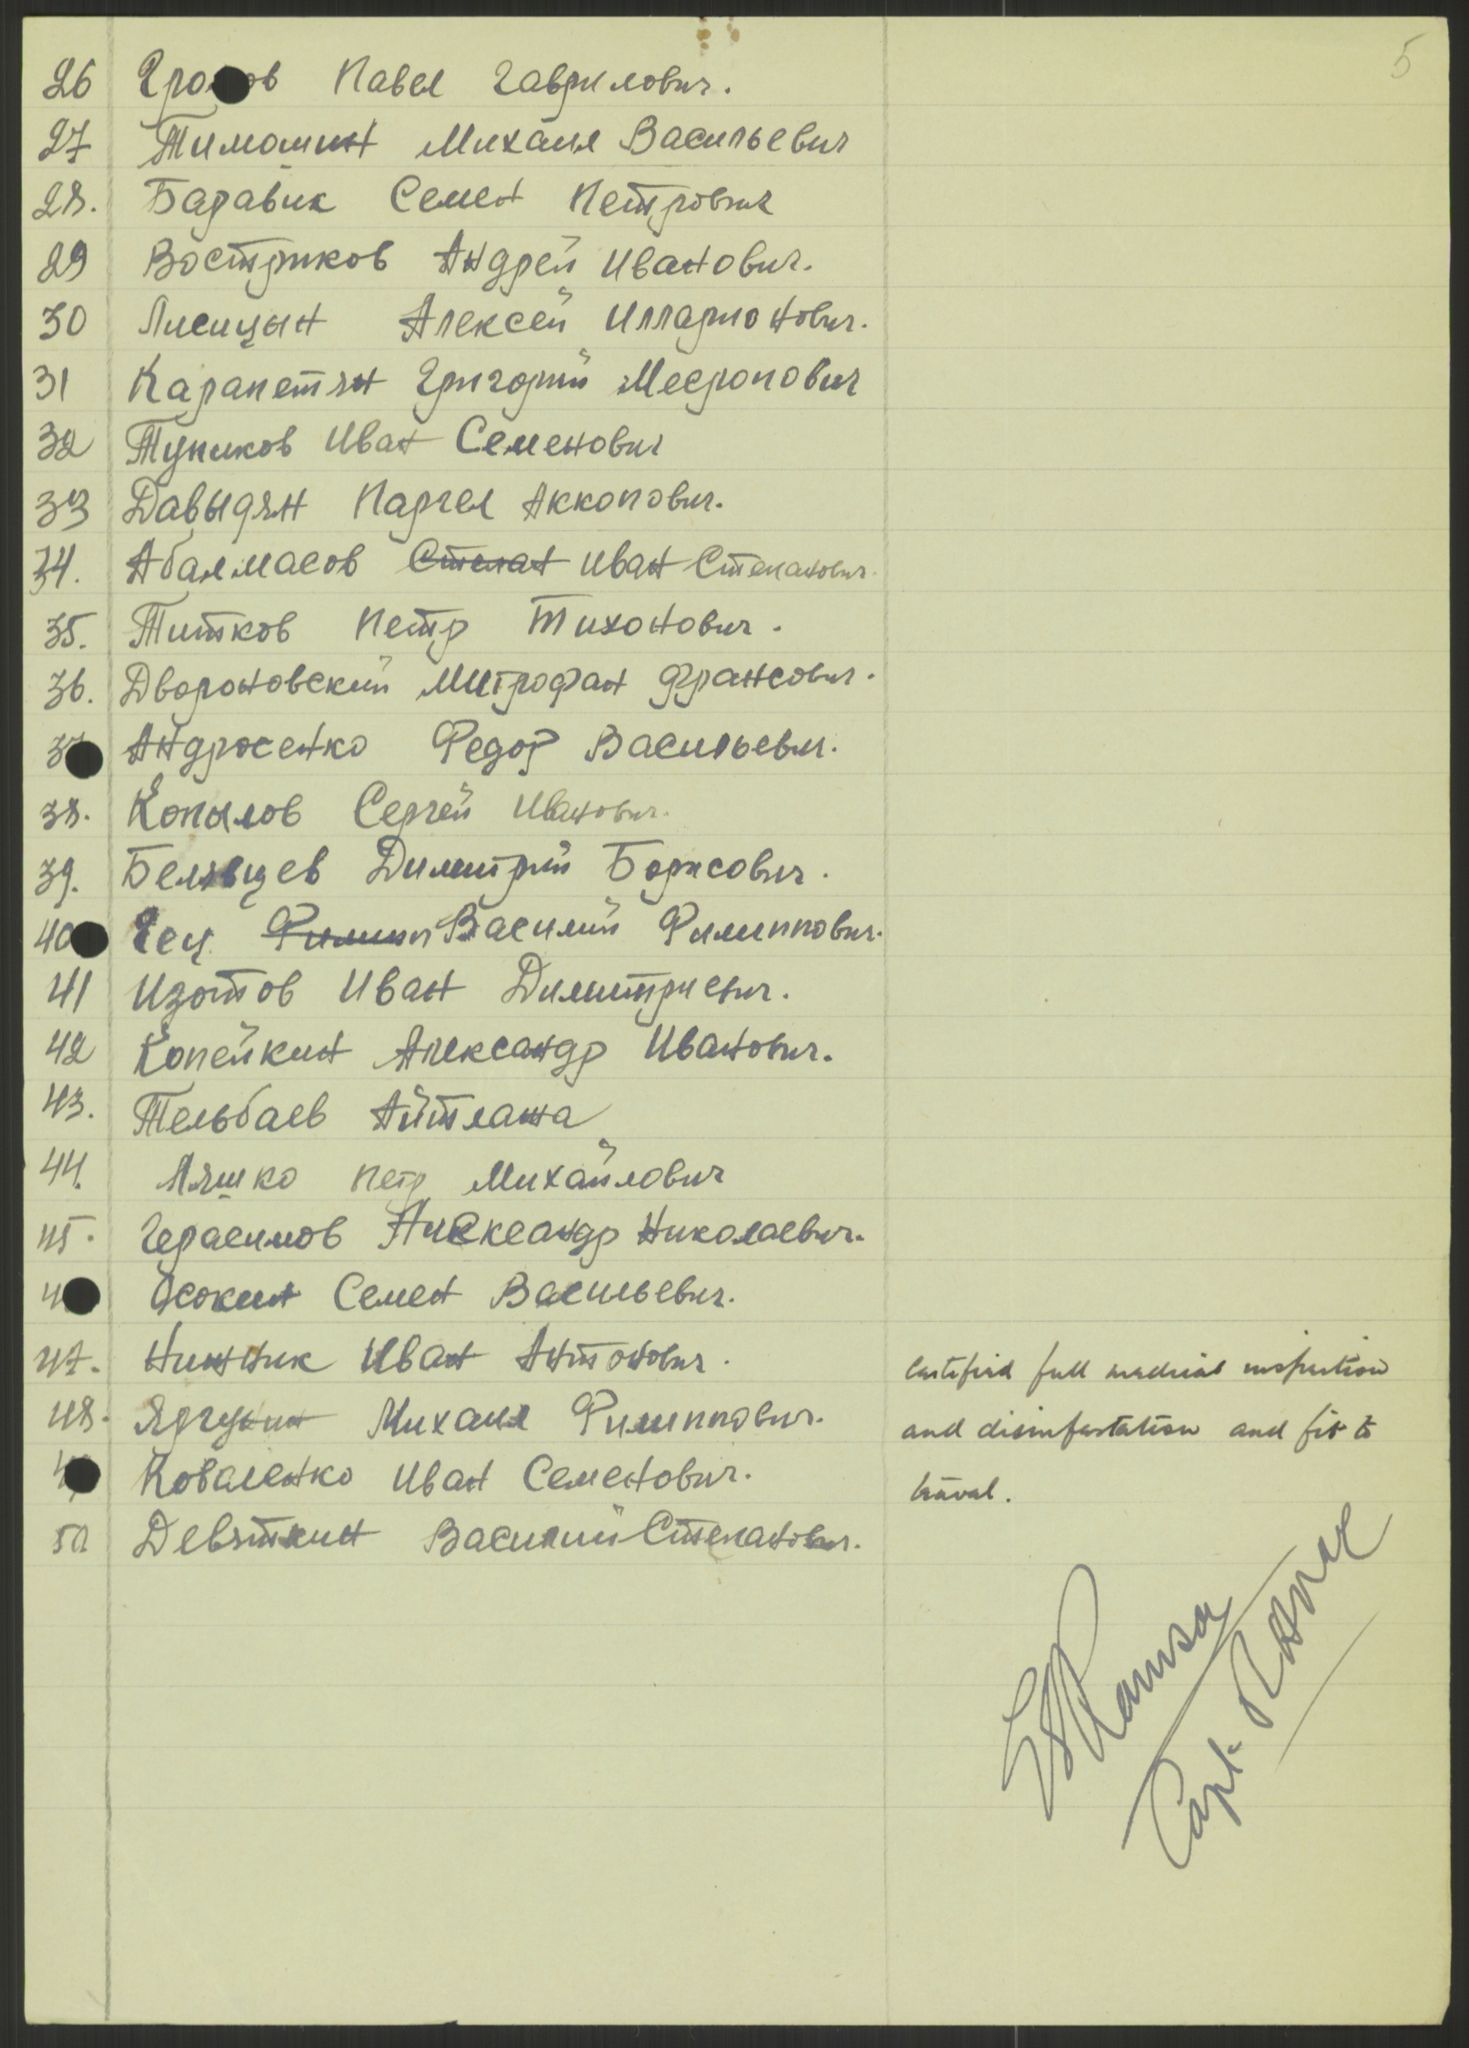 5
26 Громов Павел Гаврилович.
27 Тимошин Михаил Васильевич
28. Баравик Семен Петрович
29 Востриков Андрей Иванович.
30 Лисицын Алексей Илларионович.
31 Карапетян Григорий Месропович
32 Тупиков Иван Семенович
33 Давыдян Паргел Аккопович.
34. Абалмасов Степан Иван Степанович.
35. Титков Петр Тихонович.
36. Двороновский Митрофан Франсович.
37 Андросенко Федор Васильевич.
38. Копылов Сергей Иванович.
39. Белявцев Димитрий Борисович.
40 Гец Филипп Василий Филиппович.
41 Изотов Иван Димитриевич.
42 Копейкин Александр Иванович.
43. Тельбаев Айтлажа
44. Ляшко Петр Михайлович
45. Герасимов Александр Николаевич.
4 Осокин Семен Васильевич.
47. Нижник Иван Антонович.
Certified full medical inspection
48. Яргунин Михаил Филиппович.
and disinfestation and fit to
4 Коваленко Иван Семенович.
travel.
50 Девяткин Василий Степанович.
Ramsay
Capt. RAMC